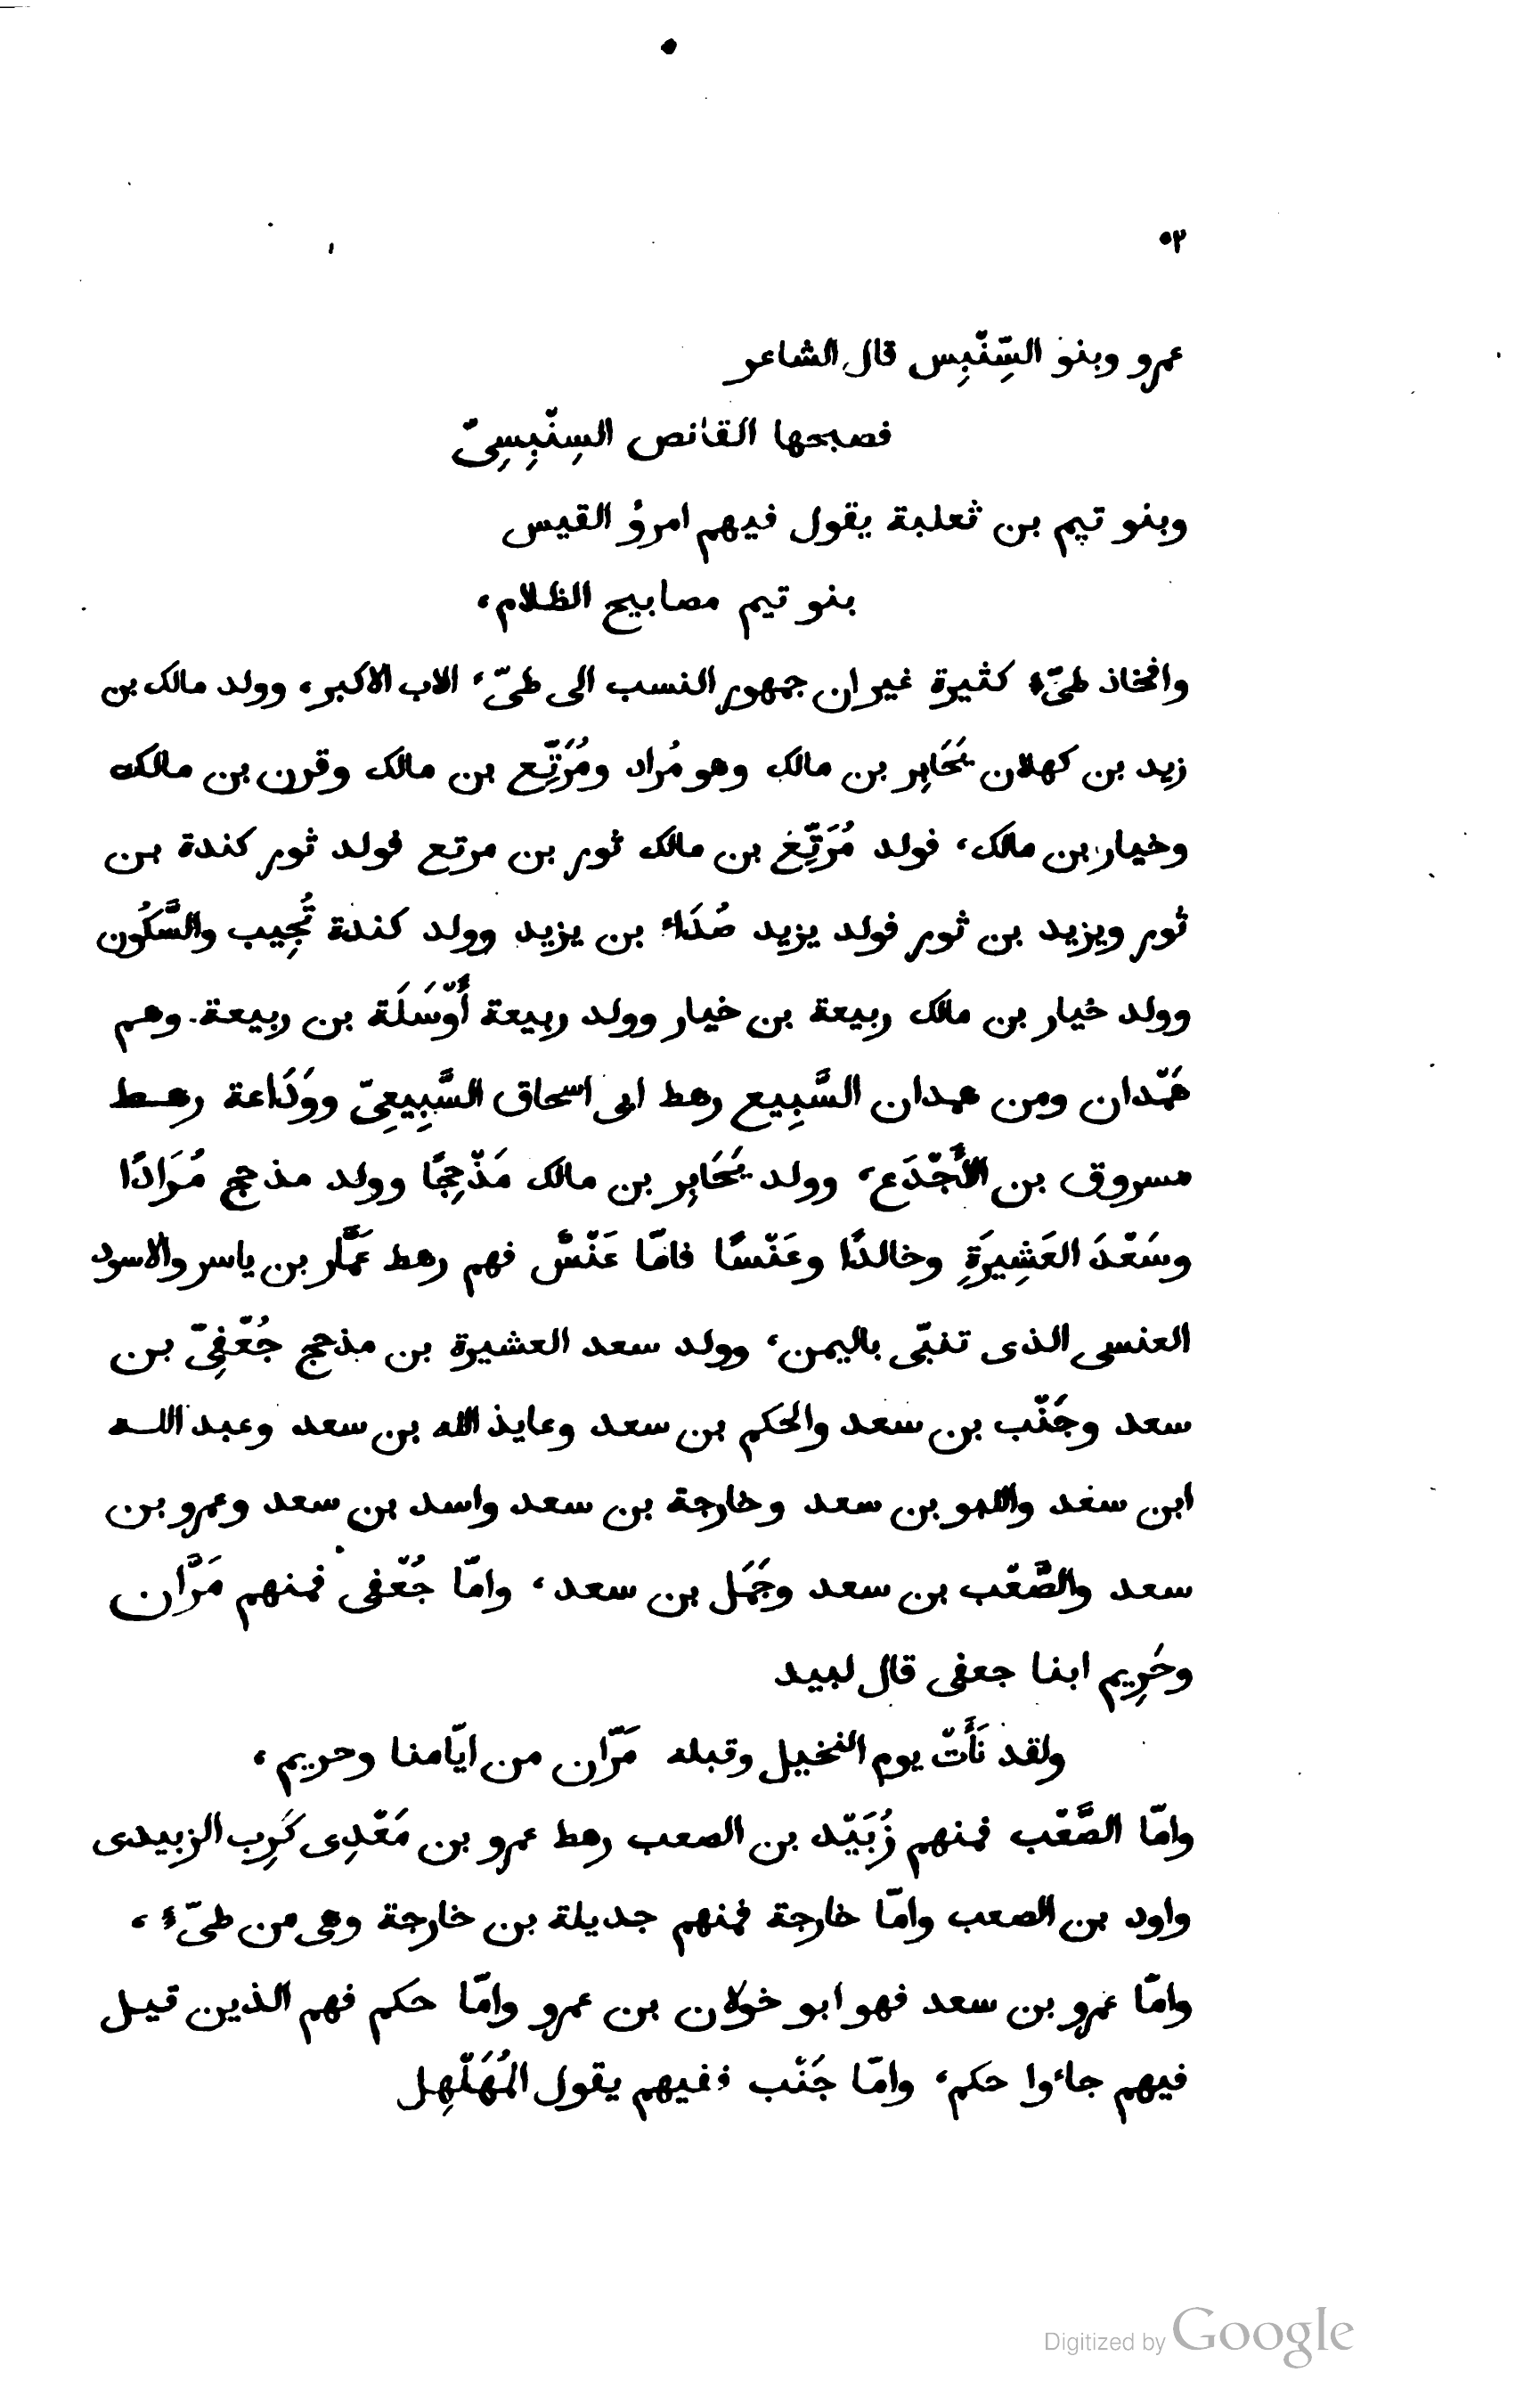 ٥٢
عمرو وبنو السِّنْبِس قال الشاعر
فصبحها القانص السِنْبِسِىّ
وبنو تيم بن ثعلبة يقول فيهم امرؤ القيس
بنو تيم مصابيح الظلام،
وافخاذ طىّء كثيرة غير ان جمهور النسب الى طىّء الاب الاكبر، وولد مالك بن
زيد بن كهلان يُحَابِر بن مالك وهو مُراد ومُرَتِّع بن مالك وقرن بن مالك
وخيار بن مالك، فولد مُرَتِّع بن مالك ثور بن مرتع فولد ثور كندة بن
ثور ويزيد بن ثور فولد يزيد صُدَاء بن يزيد وولد كندة تُجِيب والسَّكُون
وولد خيار بن مالك ربيعة بن خيار وولد ربيعة أَوْسَلَة بن ربيعة وهم
هَمْدان ومن همدان السَّبِيع رهط ابى اسحاق السَّبِيعِىّ ووَدَاعة رهط
مسروق بن الأَجْدَع، وولد يُحَابِر بن مالك مَذْحِجًا وولد مذحج مُرَادًا
وسَعْدَ العَشِيرَةِ وخالدًا وعَنْسًا فامّا عَنْسٌ فهم رهط عَمَّار بن ياسر والاسود
العنسى الذى تنبّى باليمن، وولد سعد العشيرة بن مذحج جُعْفِىّ بن
سعد وجَنْب بن سعد والحكم بن سعد وعايذ الله بن سعد وعبد الله
ابن سعد واللبو بن سعد وخارجة بن سعد واسد بن سعد وعمرو بن
سعد والصَّعْب بن سعد وجَمَل بن سعد، وامّا جُعْفى فمنهم مَرَّان
وحَرِيم ابنا جعفى قال لبيد
ولقد نَأَتْ يوم النخيل وقبله مَرّان من ايّامنا وحريم،
وامّا الصَّعْب فمنهم زُبَيْد بن الصعب رهط عمرو بن مَعْدِى كَرِب الزبيدى
واود بن الصعب وامّا خارجة فمنهم جديلة بن خارجة وهى من طىّء،
وامّا عمرو بن سعد فهو ابو خولان بن عمرو وامّا حكم فهم الذين قيل
فيهم جاءوا حكم، وامّا جَنْب ففيهم يقول المُهَلْهِل
Digitized by Google